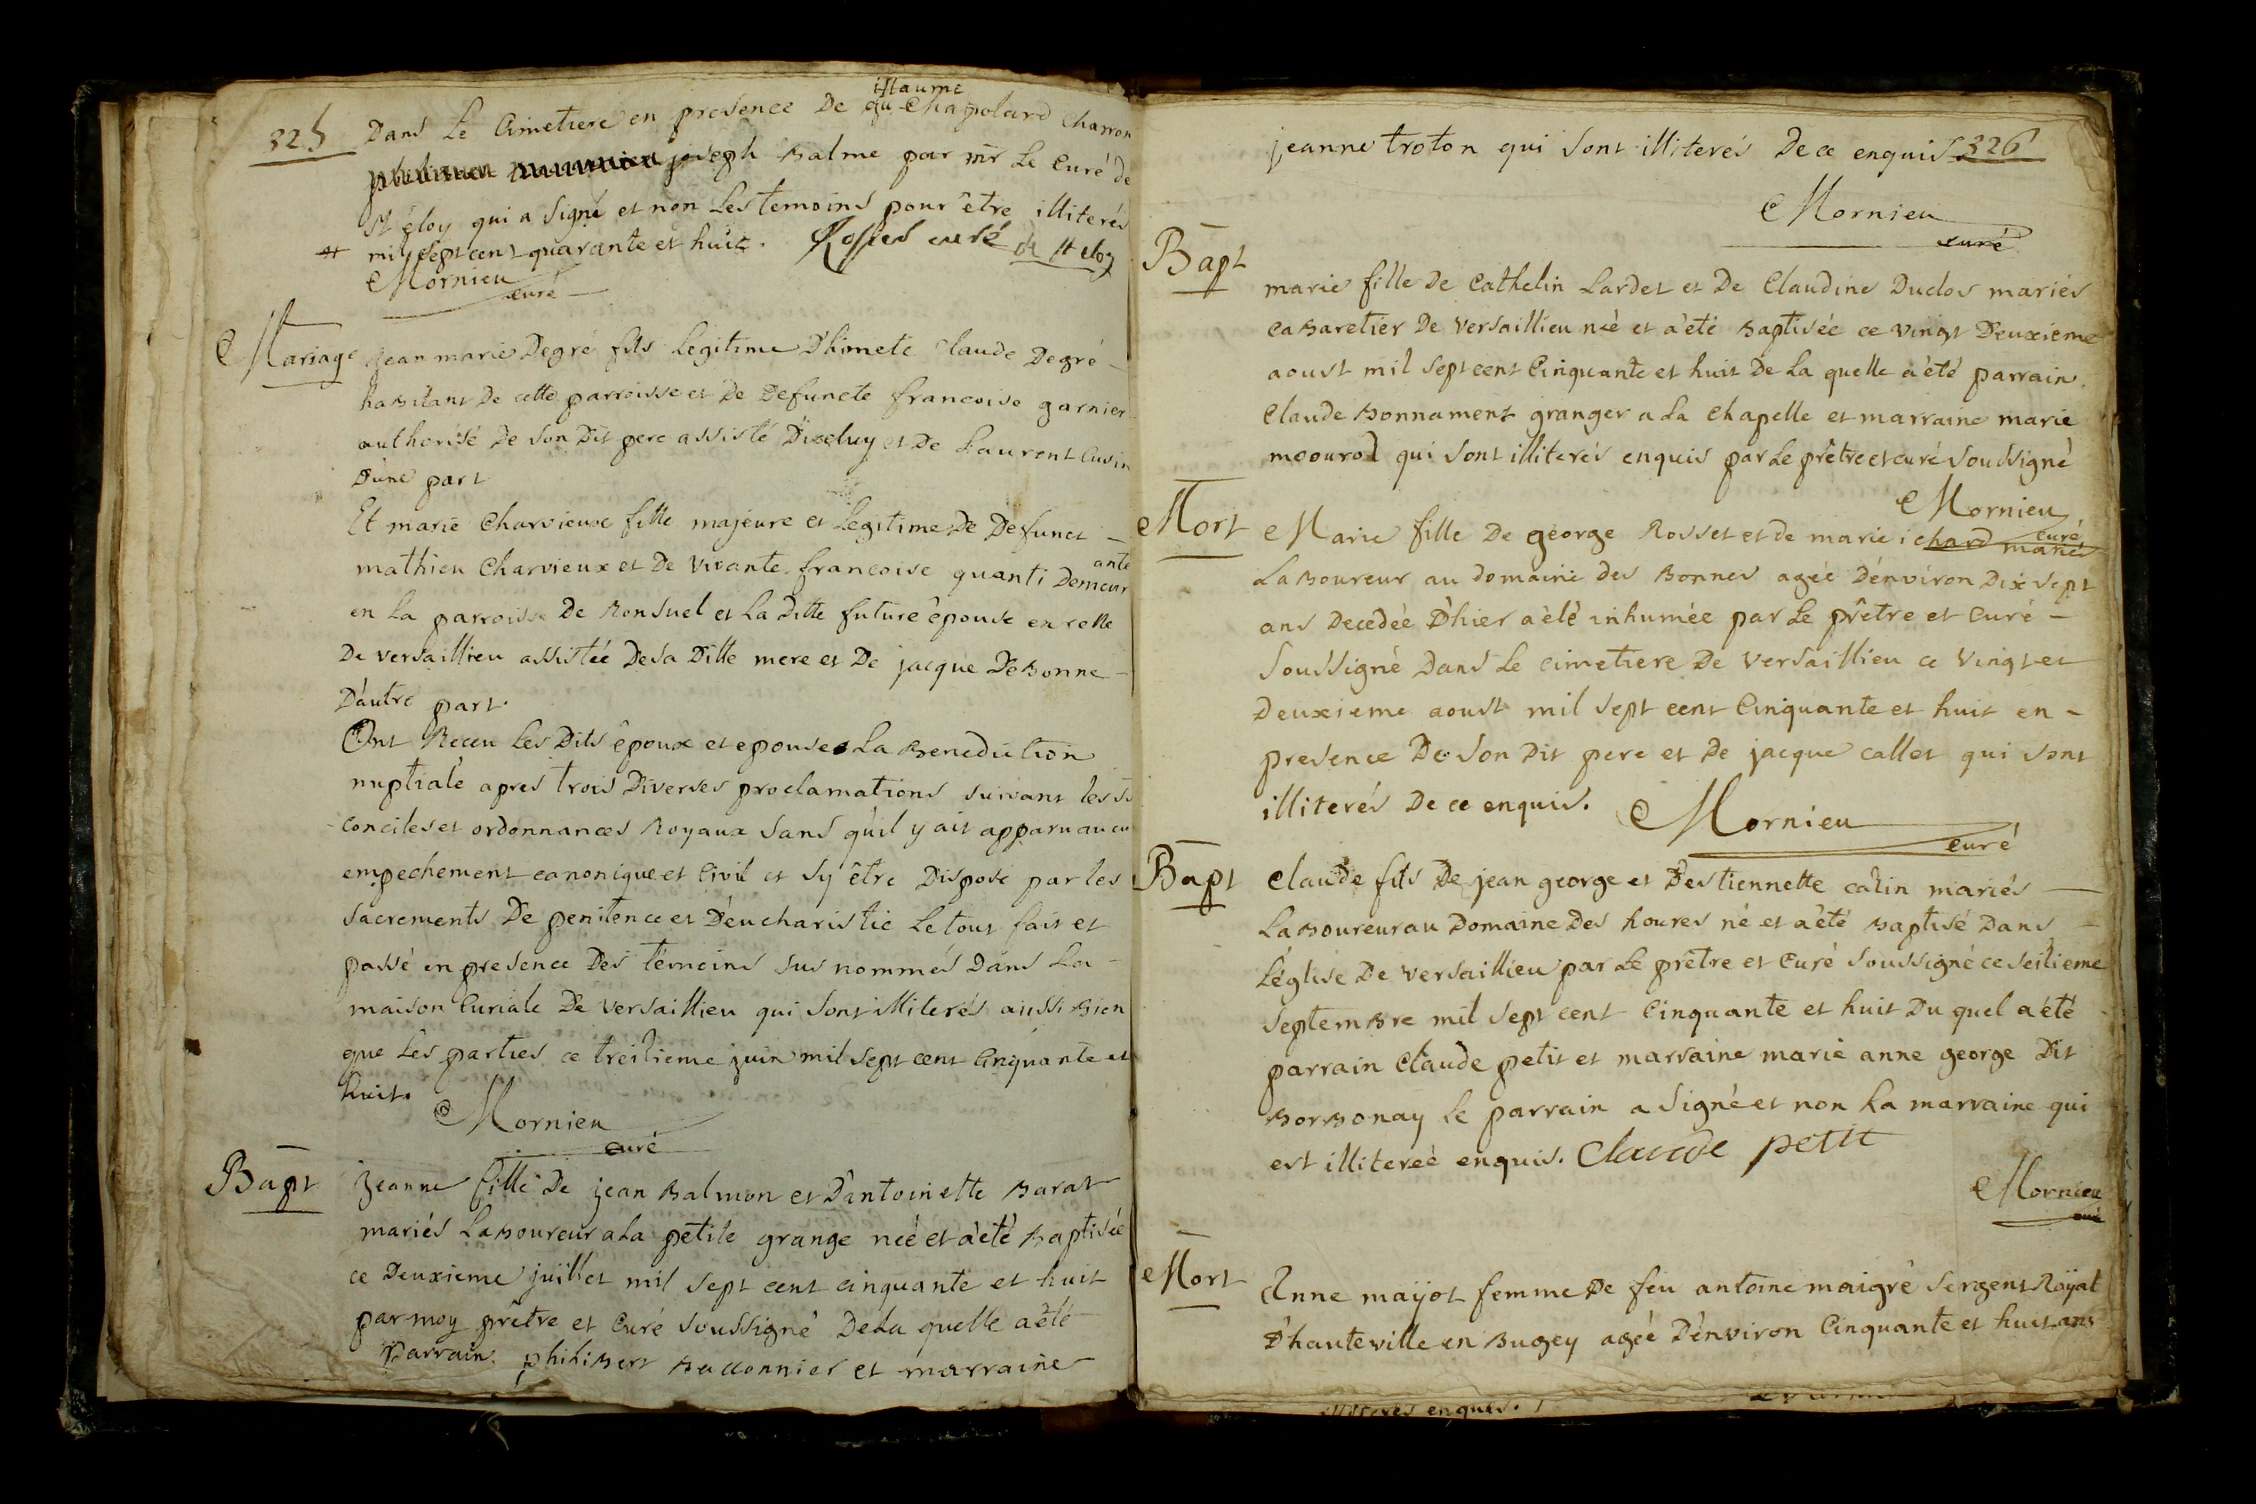 325
Dans Le Cimetiere en presence De guillaume Chapolard charron
joseph Balme par mr Le Curé de
St éloy qui a signé et non Les temoins pour être illiterés
# mil sept cent quarante et huit. curé de st eloy
Mornieu
curé
Mariage jean marie Degré fils Legitime D'himete Claude Degré
habitant De cette parroisse et De Defuncte francoise garnier
authorisé De son Dit pere assisté D'iceluy et De Laurent Cusin
D'une part
Et marie Charvieux fille majeure et Legitime De Defunct
mathieu Charvieux et De vivante francoise quanti Demeurante
en La parroisse De Ronsuel et La Ditte future épouse en celle
De versaillieu assistée De sa Ditte mere et De jacque DeBonne
D'autre part.
Ont Receu Les Dits époux et epouse La Benediction
nuptiale apres trois Diverses proclamations suivant les sts
conciles et ordonnances Royaux sans qu'il y ait apparu aucu
empechement canonique et Civil et s'y être Disposé par les
sacrements De penitence et D'eucharistie Le tout fait et
passé en presence Des témoins sus nommés Dans La
maison Curiale De versaillieu qui sont illiterés aussi Bien
que Les parties ce treisieme juin mil sept cent Cinquante et
huit.
Mornieu
curé
Bapt Jeanne fille De jean Balmon et D'antoinette Barat
mariés LaBoureur a La petite grange née et a été Baptisée
ce Deuxieme juillet mil sept cent cinquante et huit
par moy prêtre et Curé soussigné De La quelle a été
Parrain philiBert Baconnier et marraine
jeanne troton qui sont illiterés De ce enquis 326
Mornieu
curé
Bapt
marie fille De Cathelin Lardet et De Claudine Duclos mariés
caBaretier De versaillieu née et a été Baptisée ce vingt Deuxieme
aoust mil sept cent Cinquante et huit De La quelle a été parrain
Claude Bonnament granger a La Chapelle et marraine marie
moourod qui sont illiterés enquis par Le prêtre et curé soussigné
Mornieu
curé
Mort Marie fille De george Rosset et de marie ichard mariés
LaBoureur au domaine des Bonnes agée D'environ Dix sept
ans Decedée D'hier a été inhumée par Le prêtre et Curé
soussigné Dans Le cimetiere De versaillieu ce vingt et
Deuxieme aoust mil sept cent Cinquante et huit en
presence De son Dit pere et De jacque callet qui sont
illiterés De ce enquis. Mornieu
curé
Bapt Claude fils De jean george et D'estiennette catin mariés
LaBoureur au Domaine Des houres né et a été Baptisé Dans
L'église De versaillieu par Le prêtre et Curé soussigné ce seisieme
septemBre mil sept cent Cinquante et huit Du quel a été
parrain Claude petit et marraine marie anne george Dit
BorBonay Le parrain a signé et non La marraine qui
est illitereé enquis. Claude petit
Mornieu
curé
Mort Anne mayot femme De feu antoine maigre sergent Royal
D'hauteville en Bugey agée D'environ Cinquante et huit ans
illiterés enquis.